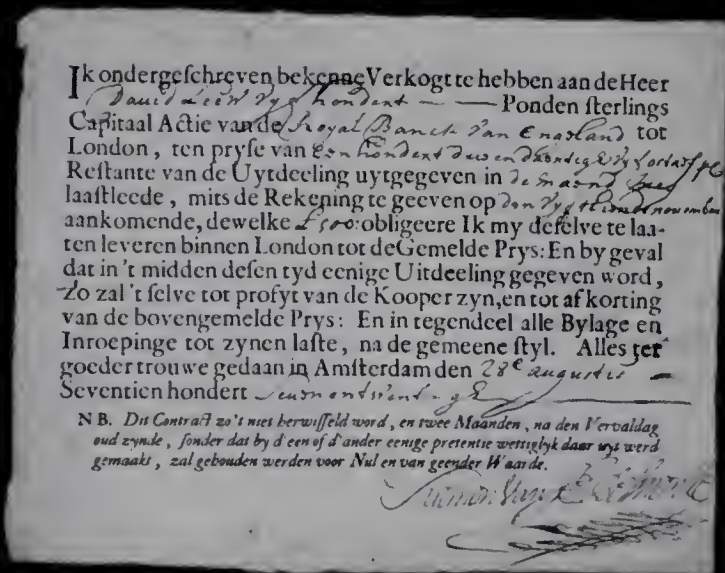 Ik ondergeschreven bekenne Verkogt te hebben aan de Heer
David Leeuw vyf hondert — — Ponden sterlings
Capitaal Actie van de Royal Banck van Engeland tot
London, ten pryse van Een hondert
Restante van de Uytdeeling uytgegeven in de maand
laastleede, mits de Rekening te geeven op den vyfthiende november
aankomende, dewelke £500: obligeere Ik my deselve te laa-
ten leveren binnen London tot de Gemelde Prys: En by geval
dat in 't midden desen tyd eenige Uitdeeling gegeven word,
Zo zal 't selve tot profyt van de Kooper zyn, en tot afkorting
van de bovengemelde Prys: En in tegendeel alle Bylage en
Inroepinge tot zynen laste, na de gemeene styl. Alles ter
goeder trouwe gedaan in Amsterdam den 28e augustus —
Seventien hondert
NB. Dit Contract zo 't niet herwisseld word, en twee Maanden, na den Vervaldag
oud zynde, sonder dat by d'een of d'ander eenige pretentie wettiglyk daar uyt werd
gemaakt, zal gehouden werden voor Nul en van geender Waarde.